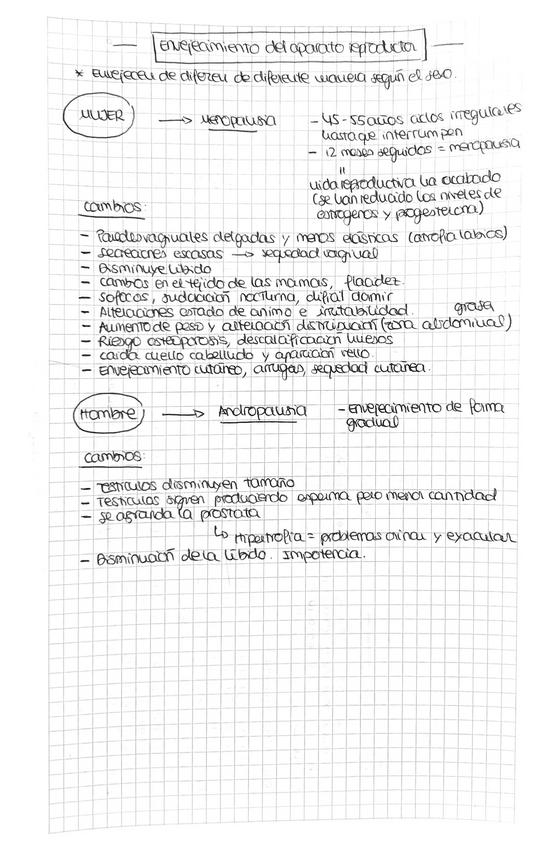 Envejecimiento del aparato reproductor
* Envejecen de diferen de diferente manera según el sexo.
MUJER → Menopausia - 45-55 años ciclos irregulares
hasta que interrumpen
- 12 meses seguidos = menopausia
"
vida reproductiva ha acabado
(se han reducido los niveles de
estrogenos y progesterona)
cambios:
- Paredes vaginales delgadas y menos elásticas (atrofia labios)
- secreciones escasas → sequedad vaginal
- Disminuye libido
- cambios en el tejido de las mamas, flacidez.
- sofocos, sudoración nocturna, dificil dormir
- Alteraciones estado de animo e irritabilidad.
- Aumento de peso y alteración distribución grasa (zona abdominal)
- Riesgo osteoporosis, descalcificación huesos
- caida cuello cabelludo y aparición vello.
- Envejecimiento cutáneo, arrugas, sequedad cutánea.
Hombre → Andropausia - envejecimiento de forma
gradual
cambios:
- Testiculos disminuyen tamaño
- Testiculos siguen produciendo esperma pero menor cantidad
- se agranda la prostata
↳ Hipertrofia = problemas orinar y eyacular
- Disminución de la libido. Impotencia.